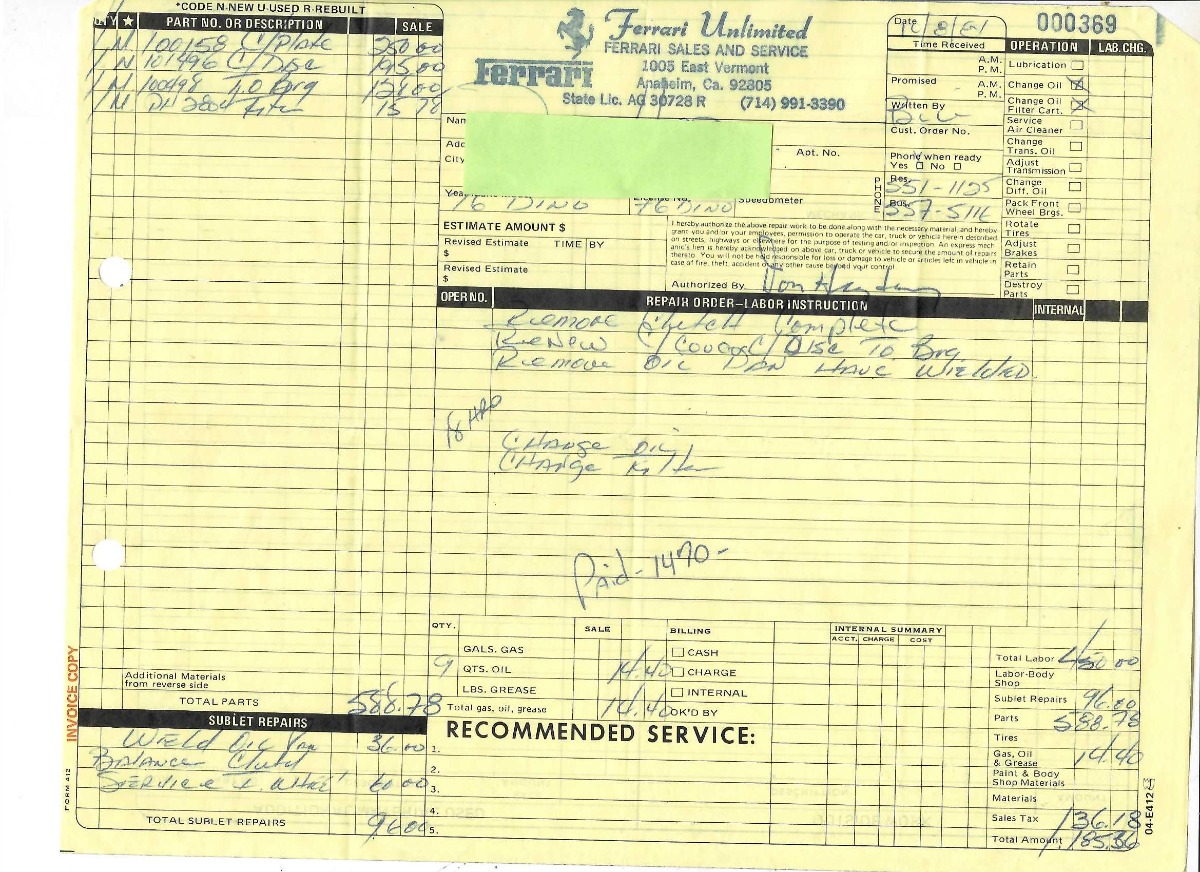 *CODE N-NEW U-USED R-REBUILT
QTY ★ PART NO. OR DESCRIPTION SALE
1 N 100158 C/Plate 250 00
1 N 101496 C/Disc 195 00
1 N 100498 T.O Brg 128 00
1 N 15 78
Additional Materials
from reverse side
TOTAL PARTS 588.78
SUBLET REPAIRS
WIELD OIL PAN 36.00
BALANCE Clutch
60 00
TOTAL SUBLET REPAIRS 96 00
INVOICE COPY
FORM 412
Ferrari Unlimited
FERRARI SALES AND SERVICE
Ferrari
1005 East Vermont
Anaheim, Ca. 92805
State Lic. AG 30728 R (714) 991-3390
Date
000369
Time Received
A.M.
P.M.
Promised
A.M.
P.M.
Written By
Cust. Order No.
Nam
Add
City
Apt. No.
Phone when ready
Yes No
PHONE
Res. 551-1125
Bus. 557-5116
Year
76 DINO
License No.
76 DINO
Speedometer
ESTIMATE AMOUNT $
Revised Estimate TIME BY
$
Revised Estimate
$
I hereby authorize the above repair work to be done along with the necessary material, and hereby
grant you and/or your employees, permission to operate the car, truck or vehicle herein described
on streets, highways or elsewhere for the purpose of testing and/or inspection. An express mech
anic's lien is hereby acknowledged on above car, truck or vehicle to secure the amount of repairs
thereto. You will not be held responsible for loss or damage to vehicle or articles left in vehicle in
case of fire, theft, accident or any other cause beyond your control.
Authorized By
OPERATION LAB. CHG.
Lubrication
Change Oil
Change Oil
Filter Cart.
Service
Air Cleaner
Change
Trans. Oil
Adjust
Transmission
Change
Diff. Oil
Pack Front
Wheel Brgs.
Rotate
Tires
Adjust
Brakes
Retain
Parts
Destroy
Parts
OPER NO. REPAIR ORDER–LABOR INSTRUCTION INTERNAL
REMOVE Clutch Complete
RENEW C/ C/DISC TO Brg
REMOVE OIL PAN HAVE WIELDED
18 HRS
CHANGE OIL
CHANGE Filter
Paid - 1470 -
QTY. SALE BILLING
GALS. GAS CASH
9 QTS. OIL 14.40 CHARGE
LBS. GREASE INTERNAL
Total gas, oil, grease 14.40 OK'D BY
INTERNAL SUMMARY
ACCT. CHARGE COST
RECOMMENDED SERVICE:
1.
2.
3.
4.
5.
Total Labor 450 00
Labor-Body
Shop
Sublet Repairs 96.00
Parts 588.78
Tires
Gas, Oil
& Grease 14.40
Paint & Body
Shop Materials
Materials
Sales Tax 36.18
Total Amount 1185.36
04-E412